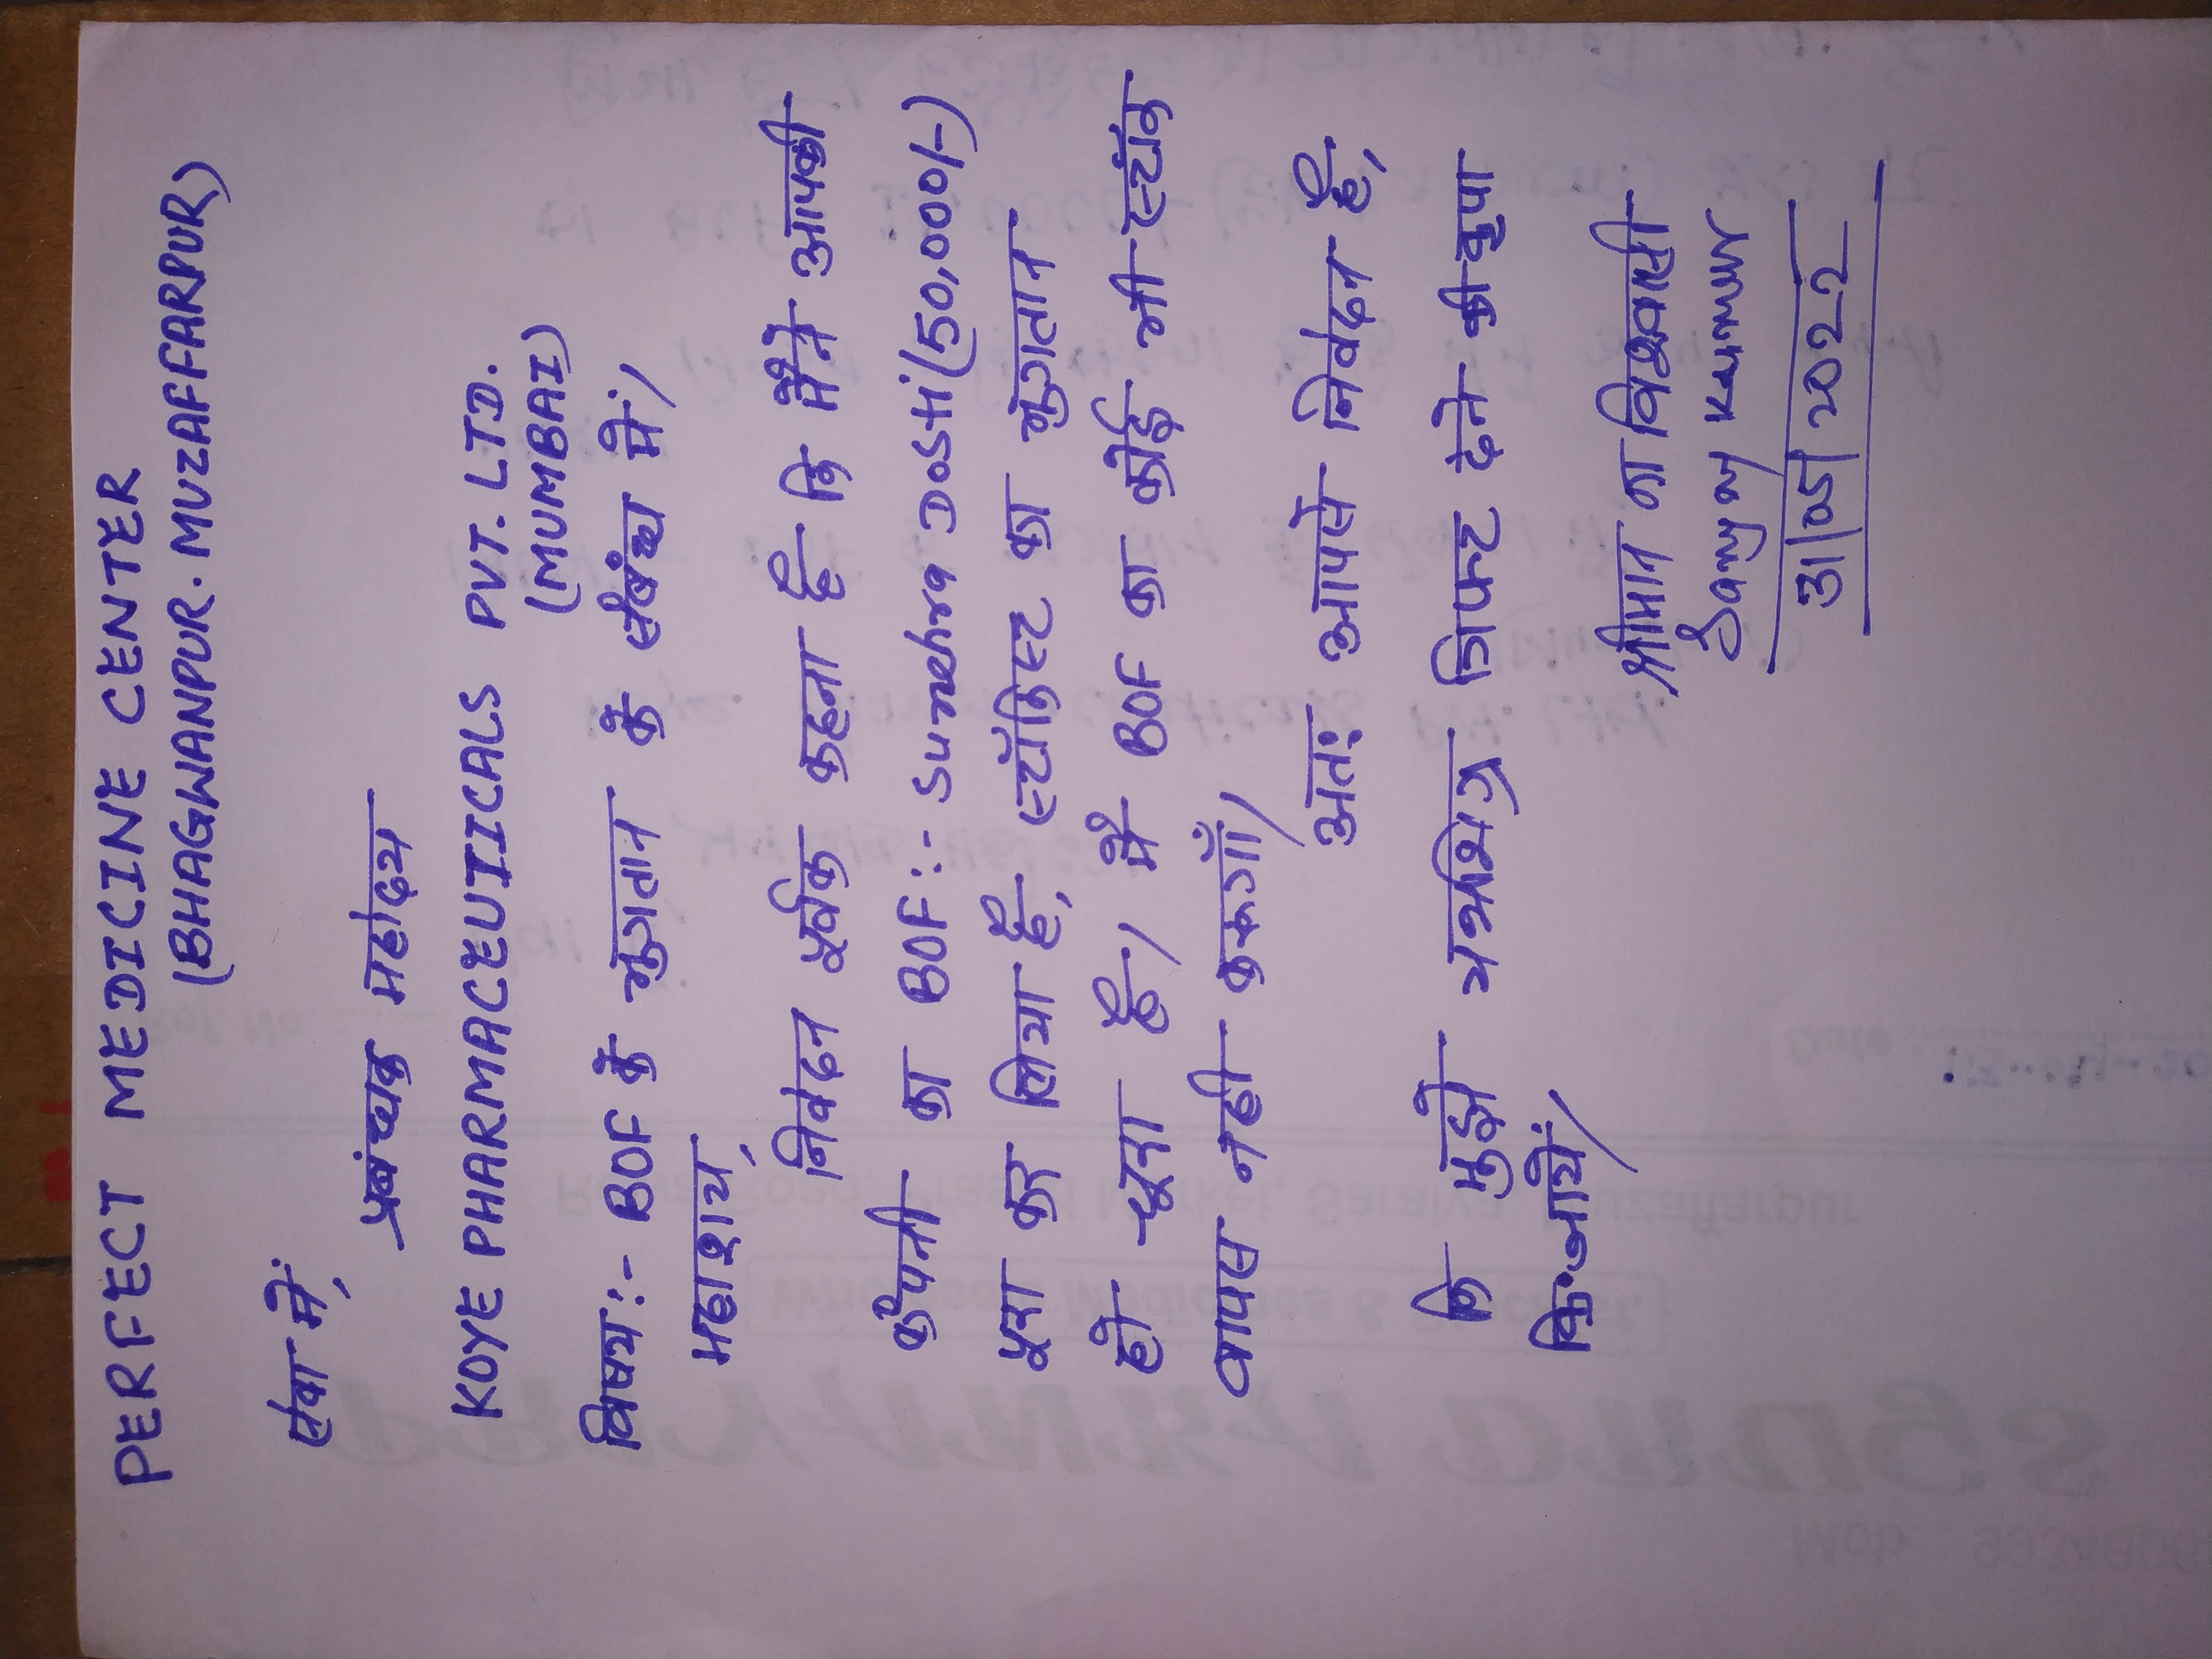 PERFECT MEDICINE CENTER
(BHAGWANPUR. MUZAFFARPUR)
सेवा में,
प्रबंन्धक महोदय
KOYE PHARMACEUTICALS PVT. LTD.
(MUMBAI)
विषय:- BOF के भुगतान के संबंध में।
महाशय,
निवेदन पूर्वक कहना है कि मैंने आपकी
कंपनी का BOF:- Suraksha DOSTHi (50,000/-)
पूरा कर लिया है, स्टॉकिस्ट का भुगतान
हो चूका है। मै BOF का कोई भी स्टॉक
वापस नही करूगाँ।
अतः आपसे निवेदन है,
कि मुझे गिफ्ट देने की कृपा
कि जाये।
श्रीमान का विश्वासी
Sanjay Kumar
31/05/2022